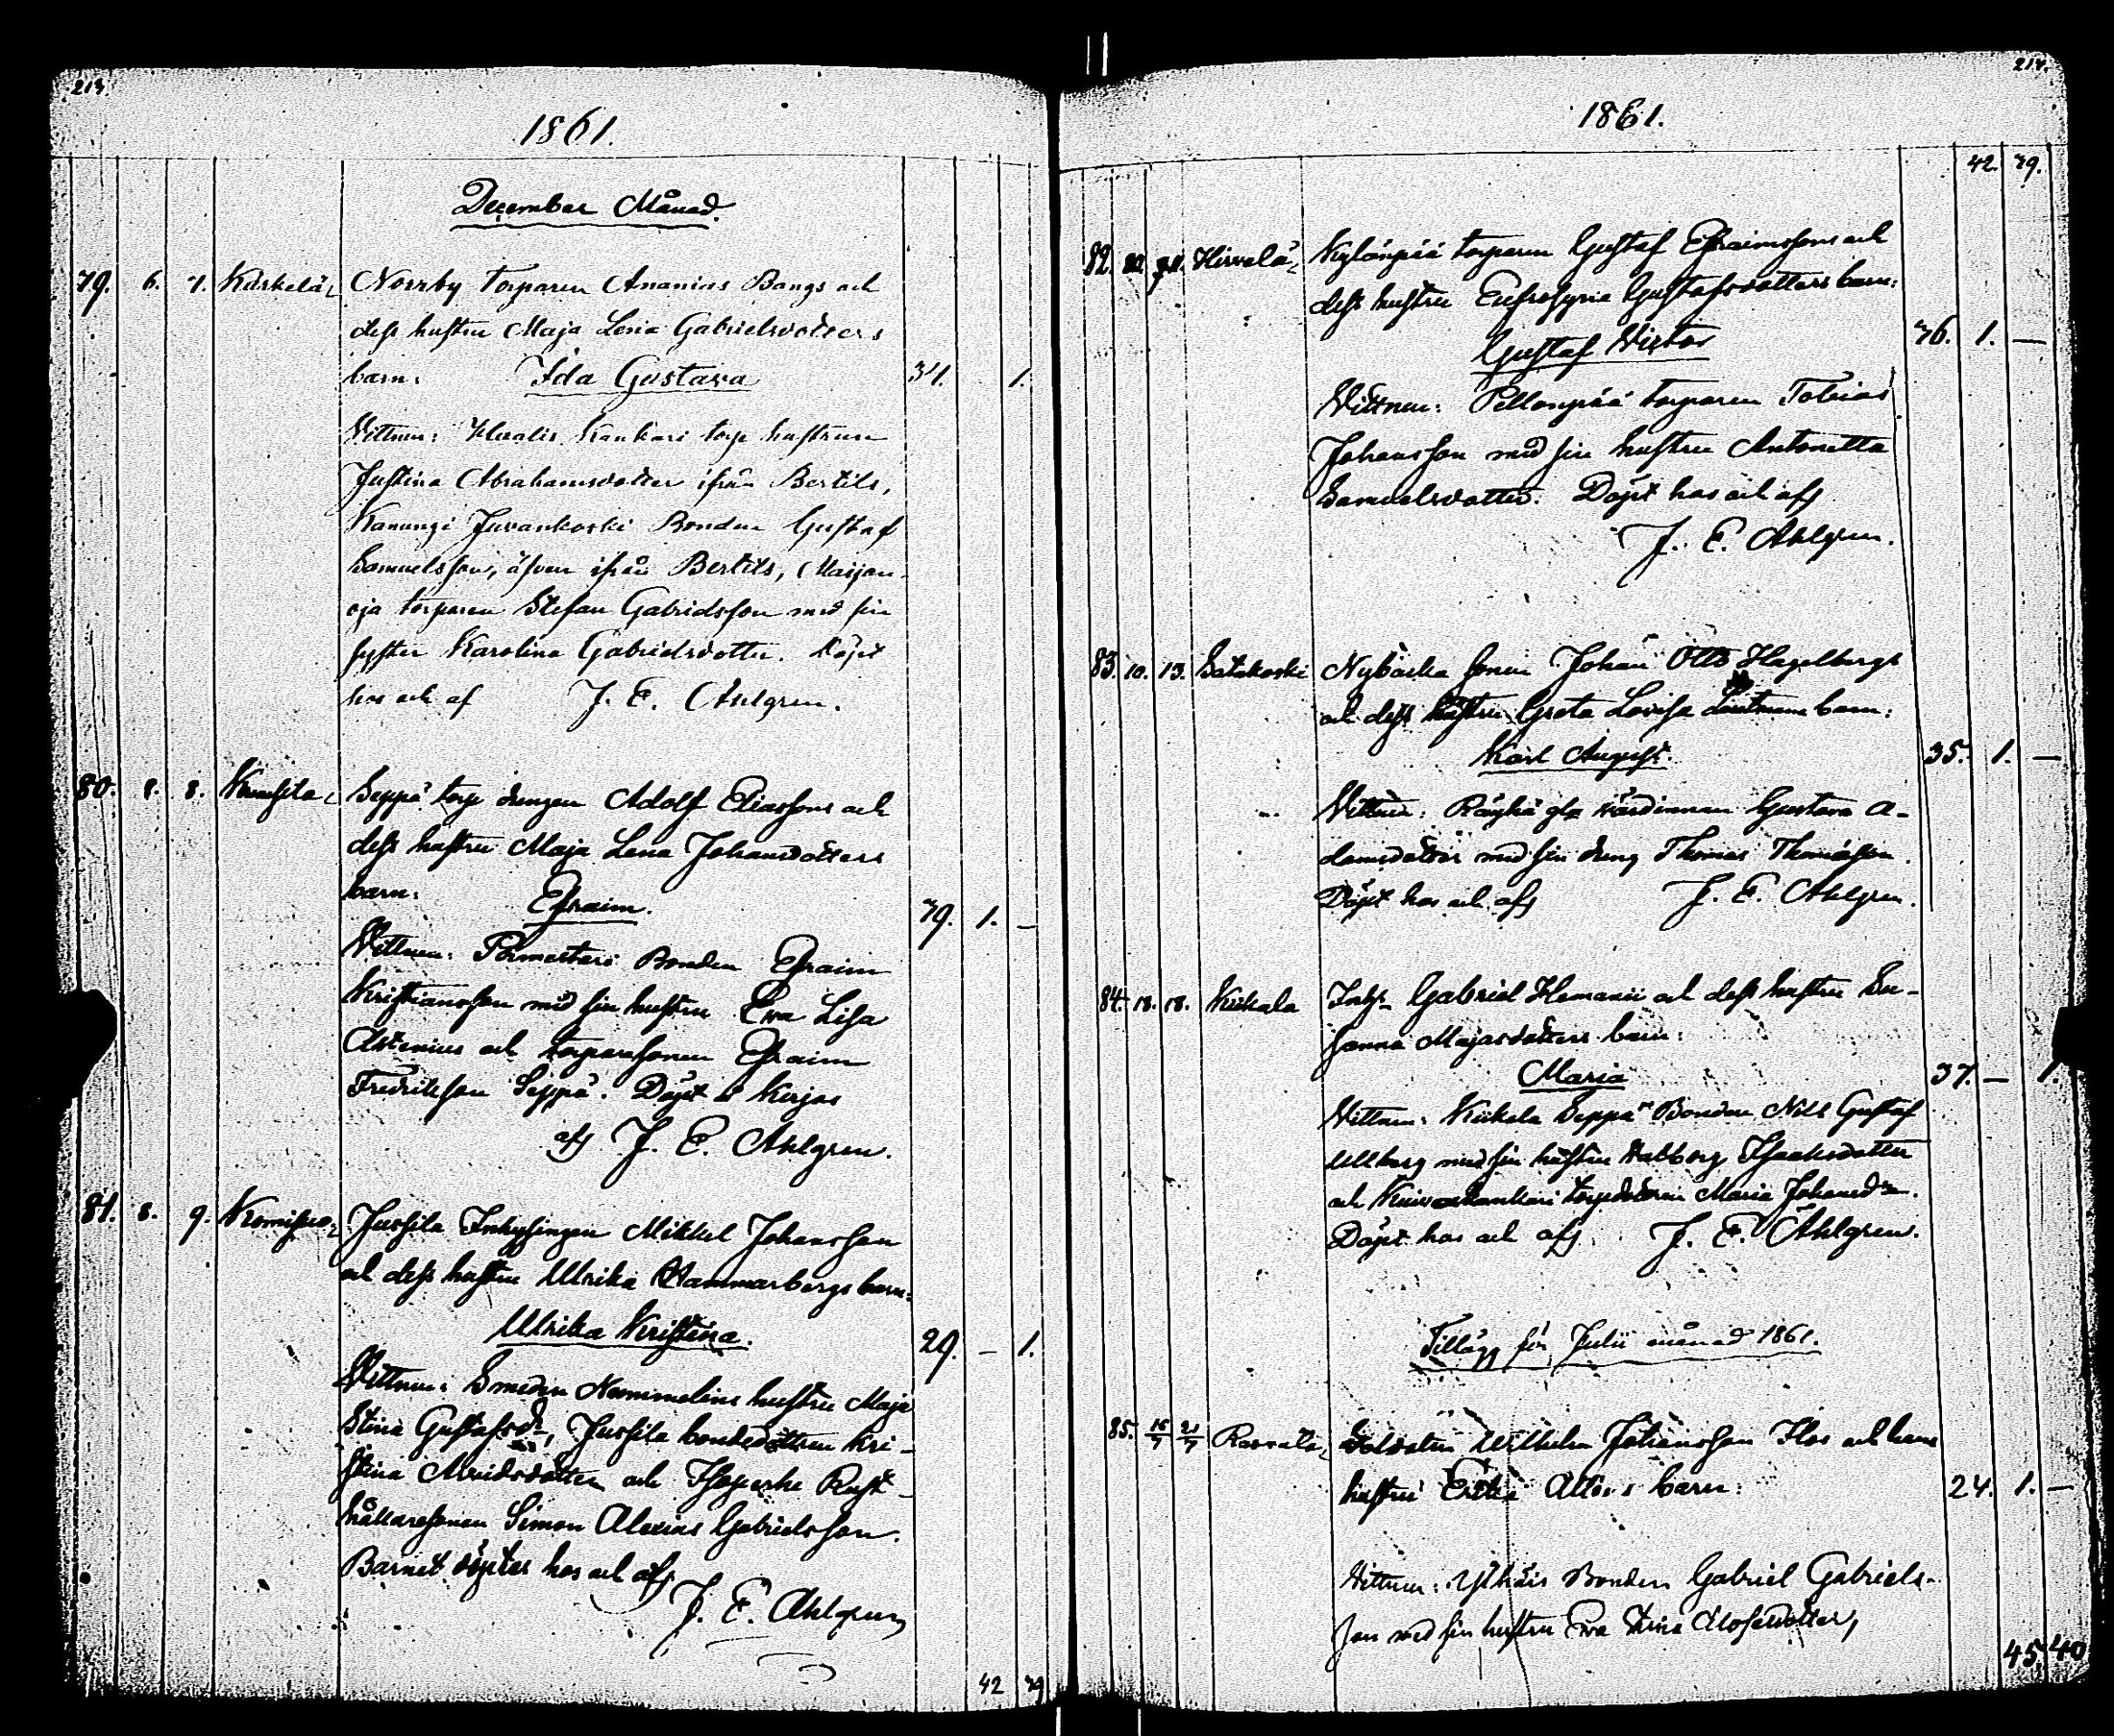 213.
1861.
December Månad.
79. 6. 7. Kärkelä, Norrby torparen Ananias Bangs och
dess hustru Maja Lena Gabrielsdotters
barn: Ida Gustava 34. 1.
Vittnen: Kankari torp hustrun
Justina Abrahamsdotter ifrån Bertils,
Kanungi Juvankoski Bonden Gustaf
Samuelsson, äfven ifrån Bertils, Maijan-
oja torparen Stefan Gabrielsson med sin
syster Karolina Gabrielsdotter. Döpt
hos och af J. E. Ahlgren.
80. 8. 8. Seppä torp drengen Adolf Eliassons och
dess hustru Maja Lena Johansdotters
barn: Efraim. 39. 1. —
Vittnen: Pormestari Bonden Efraim
Kristiansson med sin hustru Eva Lisa
Astenius och torparesonen Efraim
Fredriksson Seppä. Döpt i Kirjas
af J. E. Ahlgren.
81. 8. 9. Jussila Inhysingen Mikkel Johansson
och dess hustru Ulrika Hammarbergs barn:
Ulrika Kristina. 29. — 1.
Vittnen: Smeden Nummelins hustru Maja
Stina Gustafsdr, Jussila bondedottren Kri-
stina Arvidsdotter och Rust-
hållaresonen Simon Alexius Gabrielsson.
Barnet döptes hos och af
J. E. Ahlgren
42 39
214.
1861.
42. 39.
82. Hirvelä, Kylänpää torparen Gustaf Efraimssons och
dess hustru Eufrosyna Gustafsdotters barn:
Gustaf Victor 36. 1. —
Vittnen: Pellonpää torparen Tobias
Johansson med sin hustru Antonetta
Samuelsdotter. Döpt hos och af
J. E. Ahlgren.
83. 10. 13. Satakoski Nybacka sonen Johan Otto Hagelbergs
och dess hustru Greta Lovisa barn:
Karl August. 35. 1. —
Vittnen: gla värdinnan Gustava A-
damsdotter med sin dreng Thomas Thomasson.
Döpt hos och af J. E. Ahlgren.
84. 13. 18. Kiikala Inhs. Gabriel Hemanii och dess hustru Su-
sanna Majasdotters barn:
Maria 37. — 1.
Vittnen: Kiikala Seppä Bonden Nils Gustaf
Ullberg med sin hustru Vabborg Isaaksdotter
och torpdottren Maria Johansdr.
Döpt hos och af J. E. Ahlgren.
Tillägg för Julii månad 1861.
85. 15/7 21/7 Soldaten Wilhelm Johansson Flos och hans
hustru barn: 24. 1. —
Vittnen: Bonden Gabriel Gabriels-
son med sin hustru Eva Stina Mosesdotter,
45 40